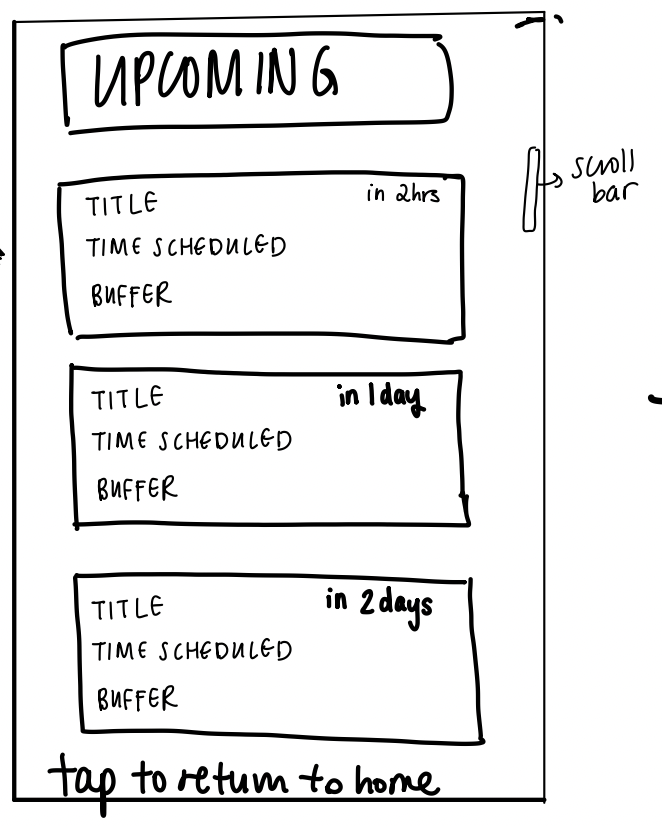 UPCOMING
TITLE
in 2hrs
TIME SCHEDULED
BUFFER
scroll
bar
TITLE
in 1 day
TIME SCHEDULED
BUFFER
TITLE
in 2 days
TIME SCHEDULED
BUFFER
tap to return to home